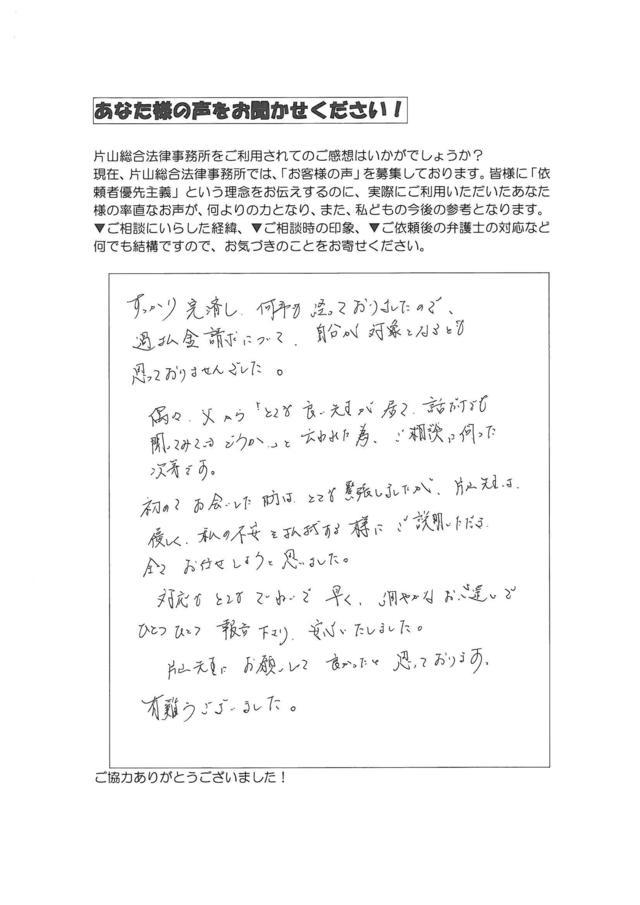 あなた様の声をお聞かせください！
片山総合法律事務所をご利用されてのご感想はいかがでしょうか？
現在、片山総合法律事務所では、「お客様の声」を募集しております。皆様に「依
頼者優先主義」という理念をお伝えするのに、実際にご利用いただいたあなた
様の率直なお声が、何よりの力となり、また、私どもの今後の参考となります。
▼ご相談にいらした経緯、▼ご相談時の印象、▼ご依頼後の弁護士の対応など
何でも結構ですので、お気づきのことをお寄せください。
すっかり完済し、何年も経っておりましたので、
過払金請求について、自分が対象となるとも
思っておりませんでした。
偶々、父から「とても良い先生が居て、話だけでも
聞いてみてはどうか」と云われた為、ご相談に伺った
次第です。
初めてお会いした時は、とても緊張しましたが、片山先生は、
優しく、私の不安を払拭する様にご説明いただき、
全てお任せしようと思いました。
対応もとてもていねいで早く、細やかなお心遣いで
ひとつひとつ報告下さり、安心いたしました。
片山先生にお願いして良かったと思っております。
有難うございました。
ご協力ありがとうございました！